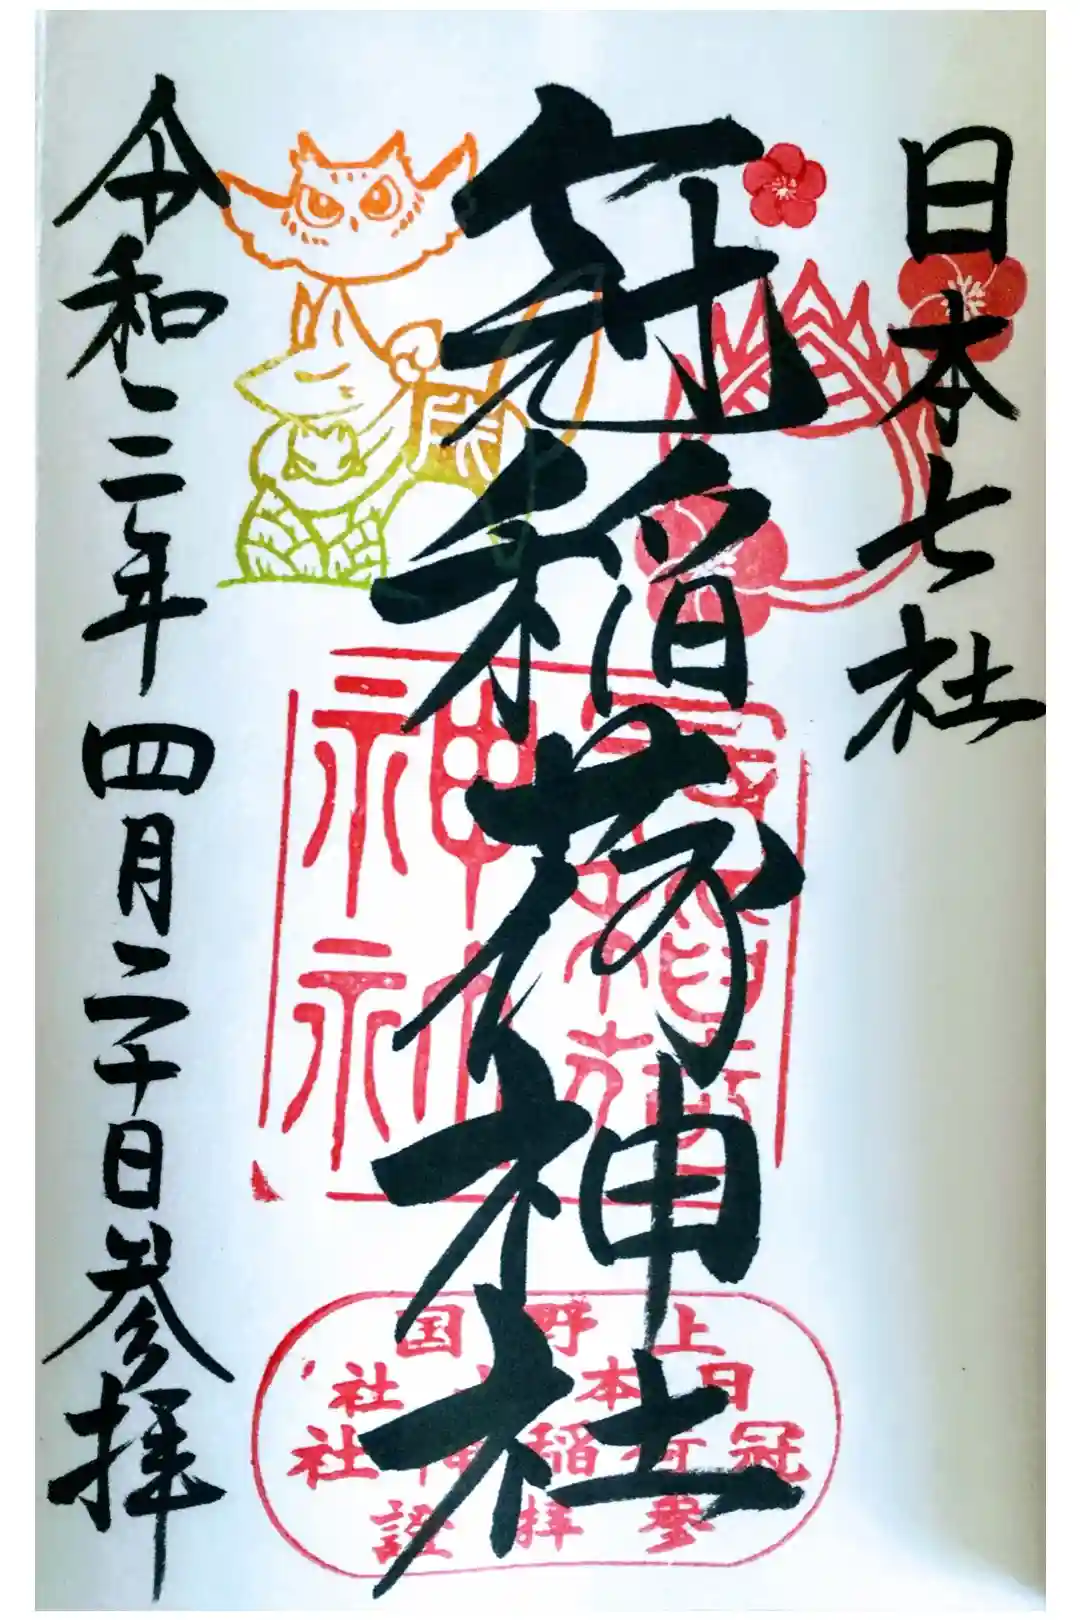 日本七社
冠稲荷神社
令和三年四月二十日参拝
上野国
日本七社
冠稲荷神社
參拝證